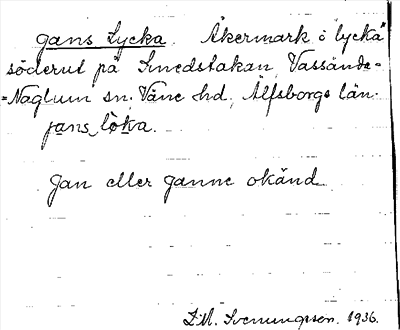 Jans Lycka. Åkermark o lycka
söderut på Smedstakan, Vassända-
-Naglum sn. Väne hd, Älfsborgs län.
jans löka.
Jan eller Janne okänd.
Svenungsson. 1936.